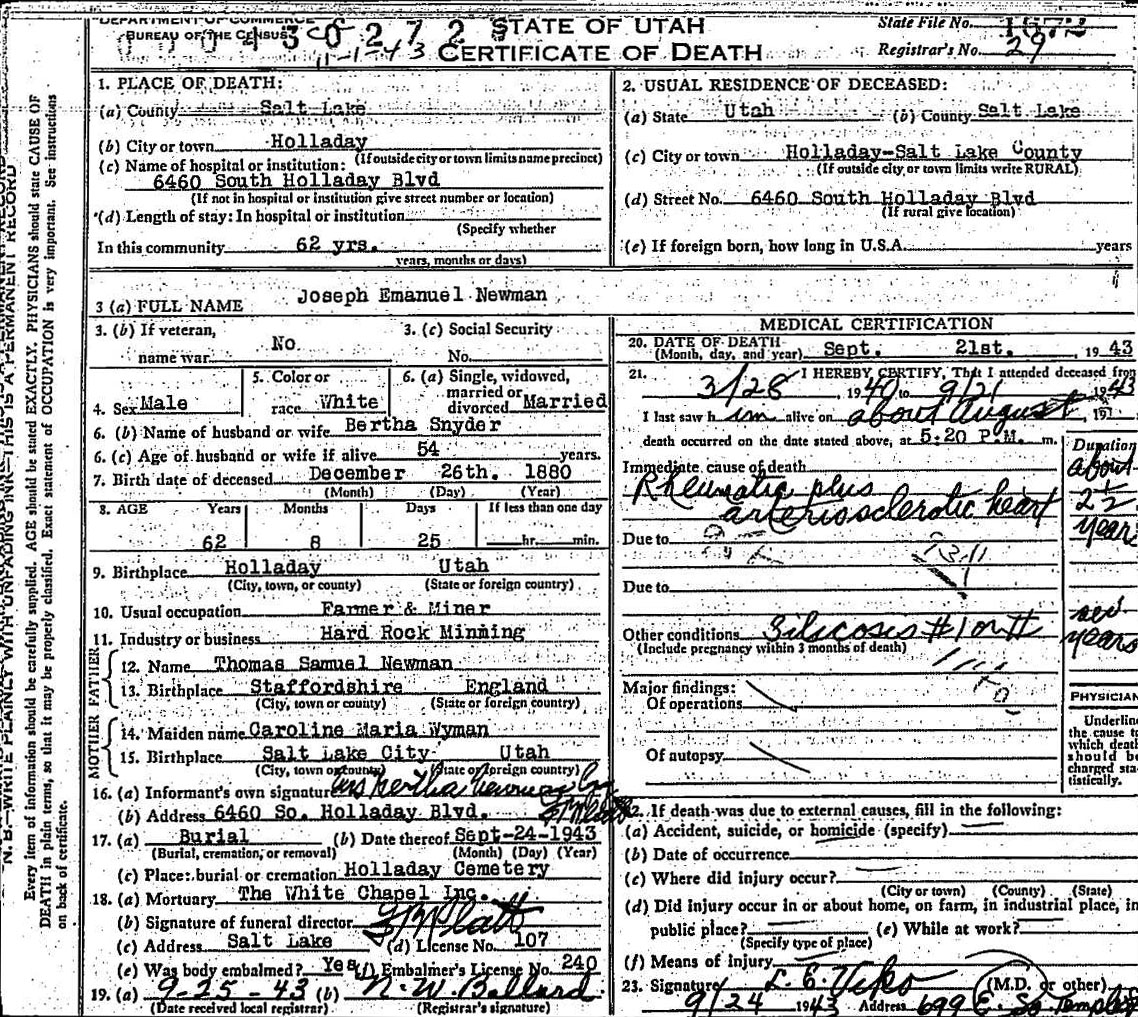 DEPARTMENT OF COMMERCE
BUREAU OF THE CENSUS
11-1-43
STATE OF UTAH
CERTIFICATE OF DEATH
State File No. 1572
Registrar's No. 29
N.B.—WRITE PLAINLY WITH UNFADING INK—THIS IS A PERMANENT RECORD
Every item of information should be carefully supplied. AGE should be stated EXACTLY. PHYSICIANS should state CAUSE OF
DEATH in plain terms, so that it may be properly classified. Exact statement of OCCUPATION is very important. See instructions
on back of certificate.
1. PLACE OF DEATH:
(a) County Salt Lake
(b) City or town Holladay
(If outside city or town limits name precinct)
(c) Name of hospital or institution:
6460 South Holladay Blvd
(If not in hospital or institution give street number or location)
(d) Length of stay: In hospital or institution
(Specify whether
In this community 62 yrs.
years, months or days)
2. USUAL RESIDENCE OF DECEASED:
(a) State Utah (b) County Salt Lake
(c) City or town Holladay-Salt Lake County
(If outside city or town limits write RURAL)
(d) Street No. 6460 South Holladay Blvd
(If rural give location)
(e) If foreign born, how long in U.S.A. years
3 (a) FULL NAME Joseph Emanuel Newman
3. (b) If veteran,
name war No
3. (c) Social Security
No.
4. Sex Male
5. Color or
race White
6. (a) Single, widowed,
married or
divorced Married
6. (b) Name of husband or wife Bertha Snyder
6. (c) Age of husband or wife if alive 54 years.
7. Birth date of deceased December 26th. 1880
(Month) (Day) (Year)
8. AGE Years Months Days If less than one day
62 8 25 hr. min.
9. Birthplace Holladay Utah
(City, town, or county) (State or foreign country)
10. Usual occupation Farmer & Miner
11. Industry or business Hard Rock Minming
FATHER
12. Name Thomas Samuel Newman
13. Birthplace Staffordshire England
(City, town or county) (State or foreign country)
MOTHER
14. Maiden name Caroline Maria Wyman
15. Birthplace Salt Lake City Utah
(City, town or county) (State or foreign country)
16. (a) Informant's own signature Mrs Bertha Newman
(b) Address 6460 So. Holladay Blvd.
17. (a) Burial (b) Date thereof Sept-24-1943
(Burial, cremation, or removal) (Month) (Day) (Year)
(c) Place: burial or cremation Holladay Cemetery
18. (a) Mortuary The White Chapel Inc.
(b) Signature of funeral director
(c) Address Salt Lake (d) License No. 107
(e) Was body embalmed? Yes (f) Embalmer's License No. 240
19. (a) 9-25-43 (b) N. W. Bollard
(Date received local registrar) (Registrar's signature)
MEDICAL CERTIFICATION
20. DATE OF DEATH
(Month, day, and year) Sept. 21st. , 1943
21. I HEREBY CERTIFY, That I attended deceased from
3/28 1940 to 9/21 1943
I last saw him alive on about August, 19
death occurred on the date stated above, at 5:20 P.M. m.
Immediate cause of death
Rheumatic plus
arteriosclerotic heart
Duration
about
2 1/2
years
Due to
Due to
Other conditions Silicosis #1 or #
(Include pregnancy within 3 months of death)
years
Major findings:
Of operations
Of autopsy
PHYSICIAN
Underline
the cause to
which death
should be
charged sta-
tistically.
22. If death was due to external causes, fill in the following:
(a) Accident, suicide, or homicide (specify)
(b) Date of occurrence
(c) Where did injury occur?
(City or town) (County) (State)
(d) Did injury occur in or about home, on farm, in industrial place, in
public place? (e) While at work?
(Specify type of place)
(f) Means of injury
23. Signature L. E. Viko (M.D. or other)
9/24 1943 Address 699 E. So Temple